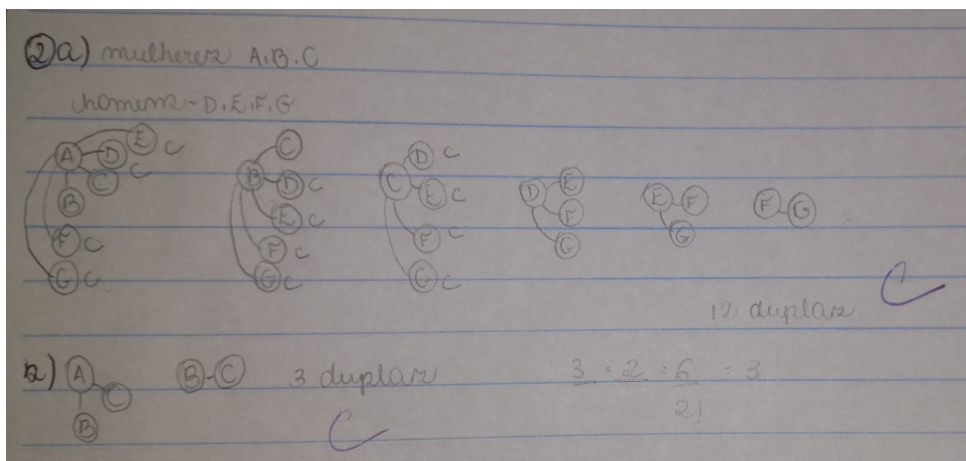 2 a) mulheres A, B, C
homens - D, E, F, G
A E C D C C B F C G C
B C D C E C F C G C
C D C E C F C G C
D E F G
E F G
F G
12 duplas. C
b) A C B B-C 3 duplas 3 . 2 = 6 = 3
2!
C